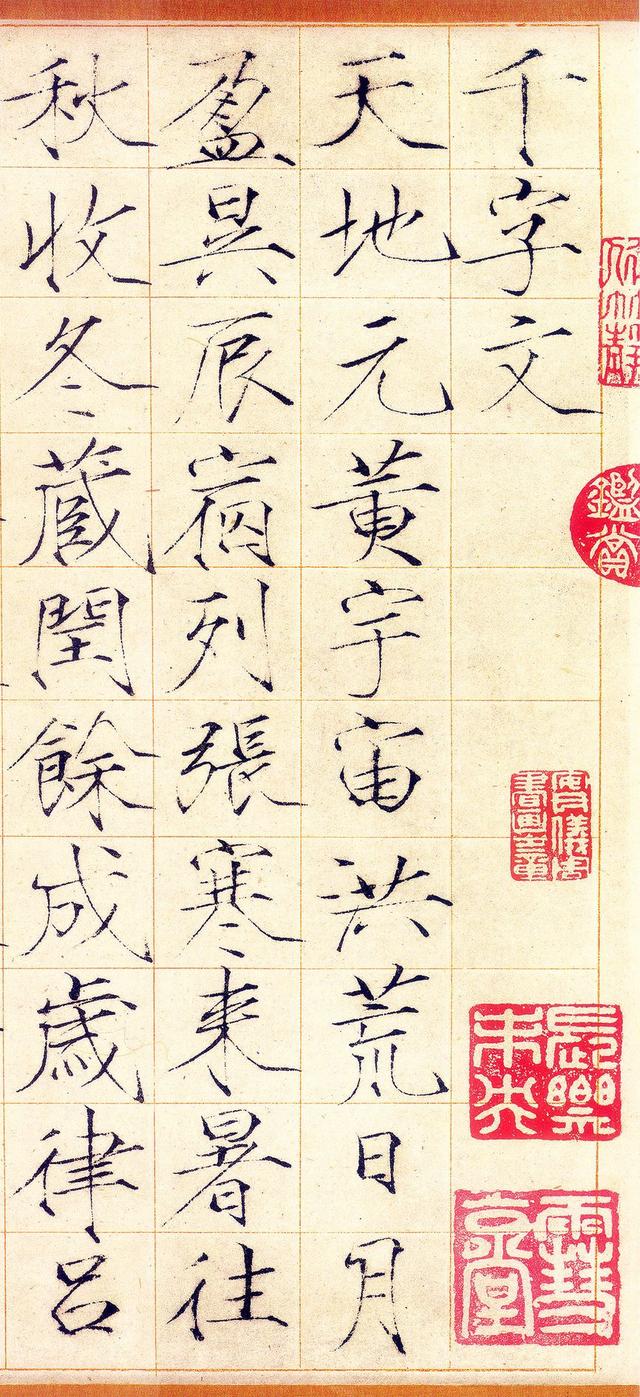 千字文
天地元黄宇宙洪荒日月
盈昃辰宿列張寒来暑往
秋收冬蔵閏餘成歳律呂
鑑賞
長樂未央